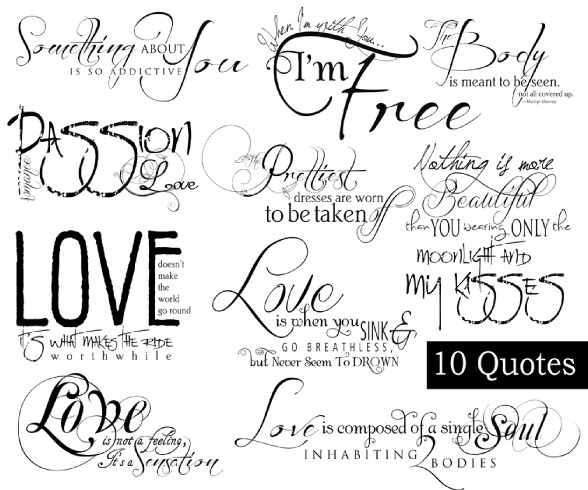 Something ABOUT You
IS SO ADDICTIVE
When I'm with You...
I'm
Free
The Body
is meant to be seen.
not all covered up.
—Marilyn Monroe
PASSION
romance
Love
The Prettiest
dresses are worn
to be taken off
Nothing is more
Beautiful
than YOU wearing ONLY the
MOONLIGHT AND
MY KISSES
LOVE
doesn't
make
the
world
go round
IT'S WHAT MAKES THE RIDE
worthwhile
Love
is when you SINK &
GO BREATHLESS,
but Never Seem To DROWN
10 Quotes
Love
is not a feeling,
It's a Sensation
Love is composed of a single Soul
INHABITING 2 BODIES